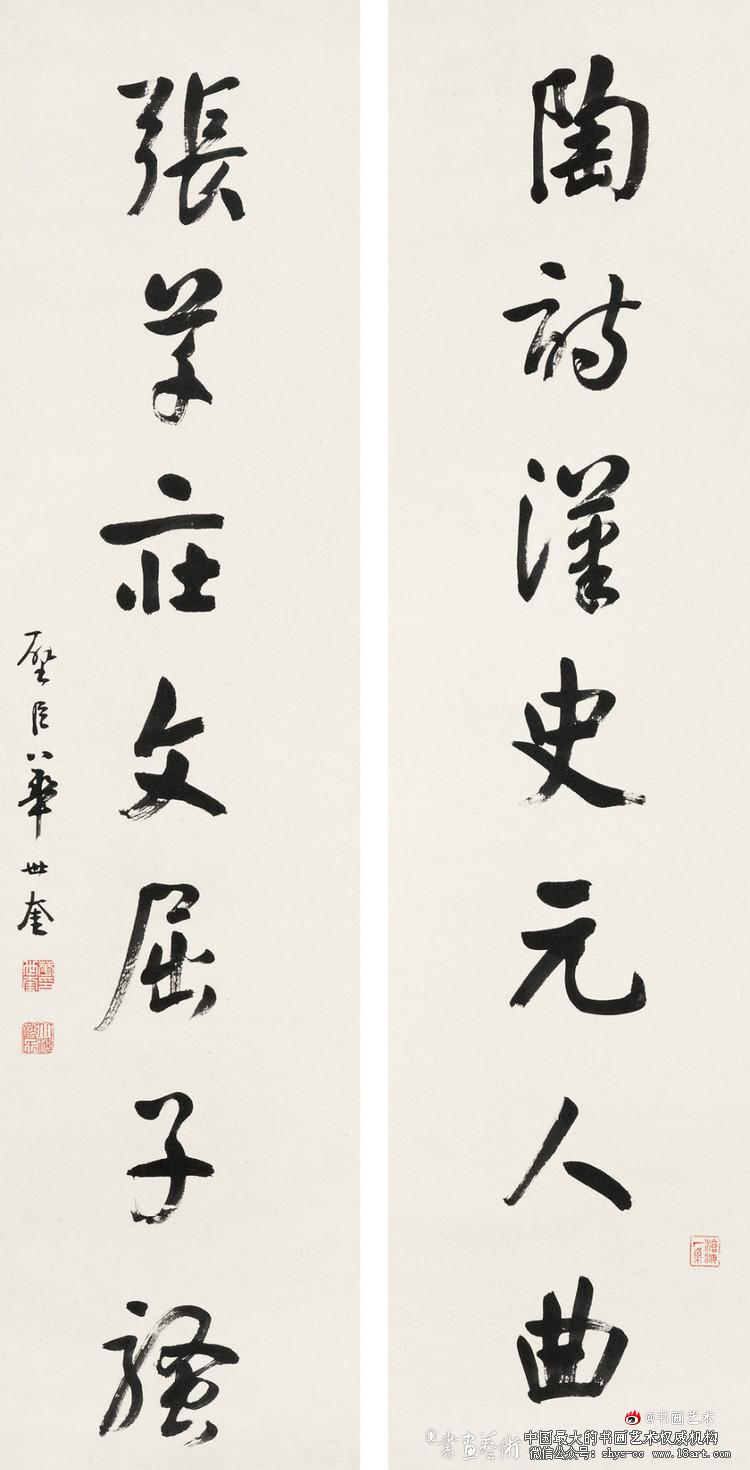 陶詩漢史元人曲
張草莊文屈子騷
壁臣華世奎
@书画艺术
書畫藝術
中国最大的书画艺术权威机构
微信公众号：shys-cc www.18art.com